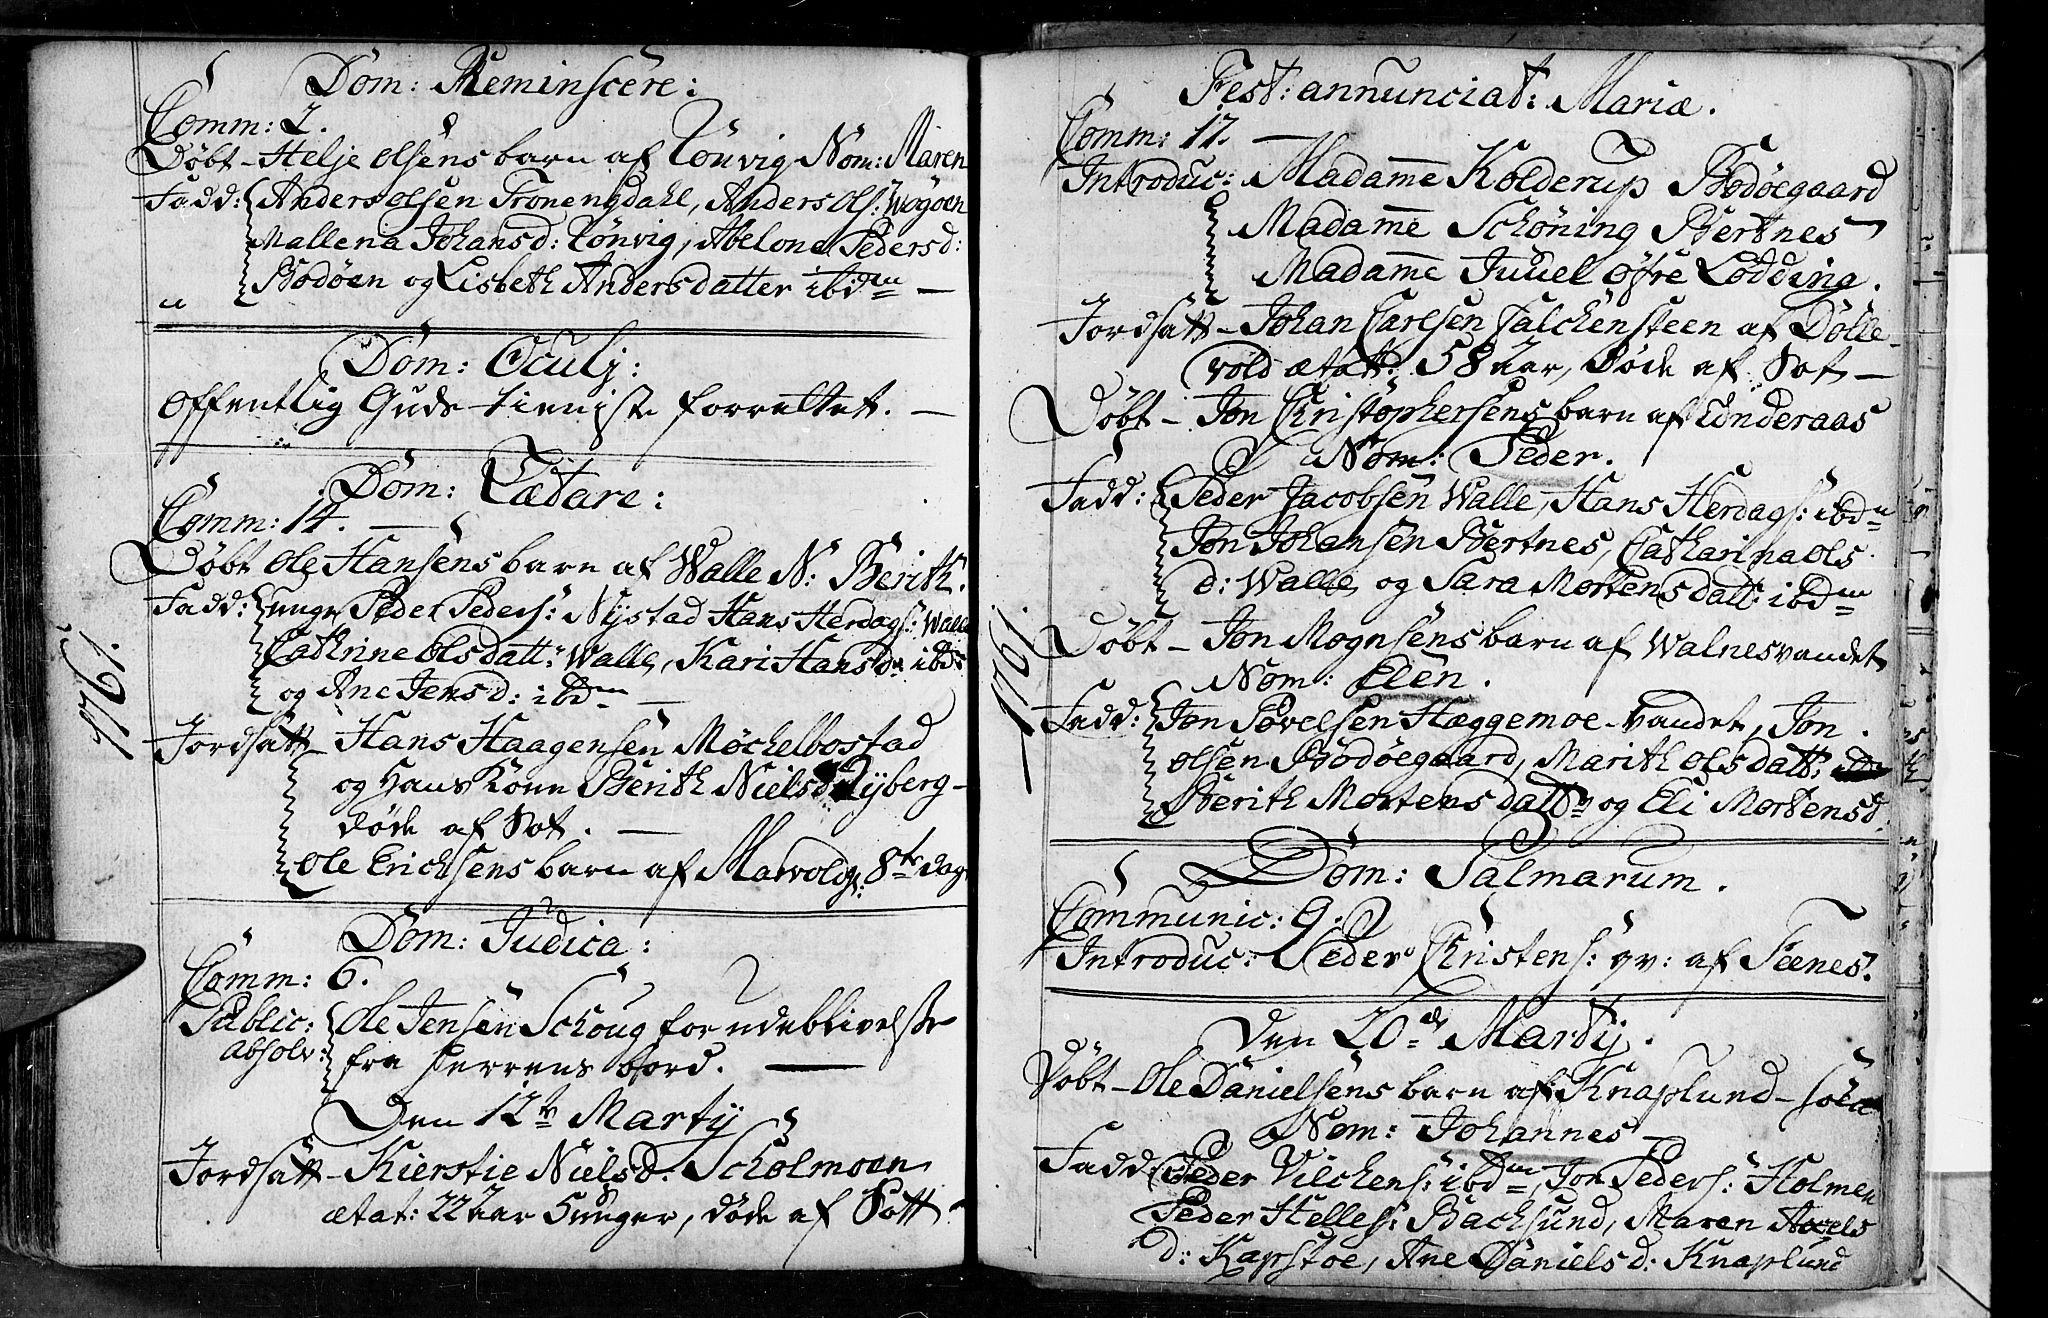 Dom: Reminscere:
Comm: 2.
Døbt – Helje Olsens barn af Tønvig Nom: Maren
Fadd: Anders Olsen Tronengdahl, Anders Ols: Wogøen
Mallena Johansd: Tønvig, Abelona Pedersd:
Bodøen og Lisbeth Andersdatter ibdm –
Dom: Oculj:
Offentlig Guds-tieniste forrettet. –
Dom: Lætare:
Comm: 14. –
Døbt Ole Hansens barn af Walle N: Berith.
Fadd: unge Peder Peders: Nystad Hans Herdags: Walle
Cathrine Olsdatt: Walle, Kari Hansd: ibd:
og Ane Jensd: ibdm –
1761.
Jordsatt – Hans Haagensen Møchelbostad
og Hans Kone Berith Nielsd: Nyberg –
døde af Sot. –
Ole Erichsens barn af Marvold 8te dag
Dom: Judica:
Comm: 6.
Public: Ole Jensen Schoug for udeblivelse
Absolv: fra Herrens bord. –
Den 12te Martij
Jordsatt – Kierstie Nielsd. Scholmoen
ætat: 22 aar 5 uger, døde af Sott
Fest: annunciat: Mariæ.
Comm: 17. –
Introduc: Madame Kolderup Bodøegaard
Madame Schøning Bertnes
Madame Juuel Øfre Lødding.
Jordsatt – Johan Carlsen Falchensteen af Dølle-
vold ætatt: 58 aar, Døde af Sot –
Døbt – Jon Christophersens barn af Tønderaas
Nom: Peder.
Fadd: Peder Jacobsen Walle, Hans Herdags: ibdm
Jon Johansen Bertnes, Catharina Ols
d: Walle og Sara Mortensdatt: ibdm
1761.
Døbt – Jon Mognsens barn af Walnesvandet
Nom: Elen.
Fadd: Jon Povelsen Hæggemoe-vandet, Jon
Olsen Bodøegaard, Marith Olsdatt:
Berith Mortensdatt: og Eli Mortensd:
Dom: Palmarum.
Communic: 9.
Introduc: Peder Christens: qv: af Teenes.
Den 20de Martij.
Døbt – Ole Danielsens barn af Knaplund –
Nom: Johannes
Fadd: Peder Vilchens: ibdm, Jon Peders: Holmen
Peder Helles: Bachsund, Maren Axels
d: Kapstoe, Ane Danielsd: Knaplund